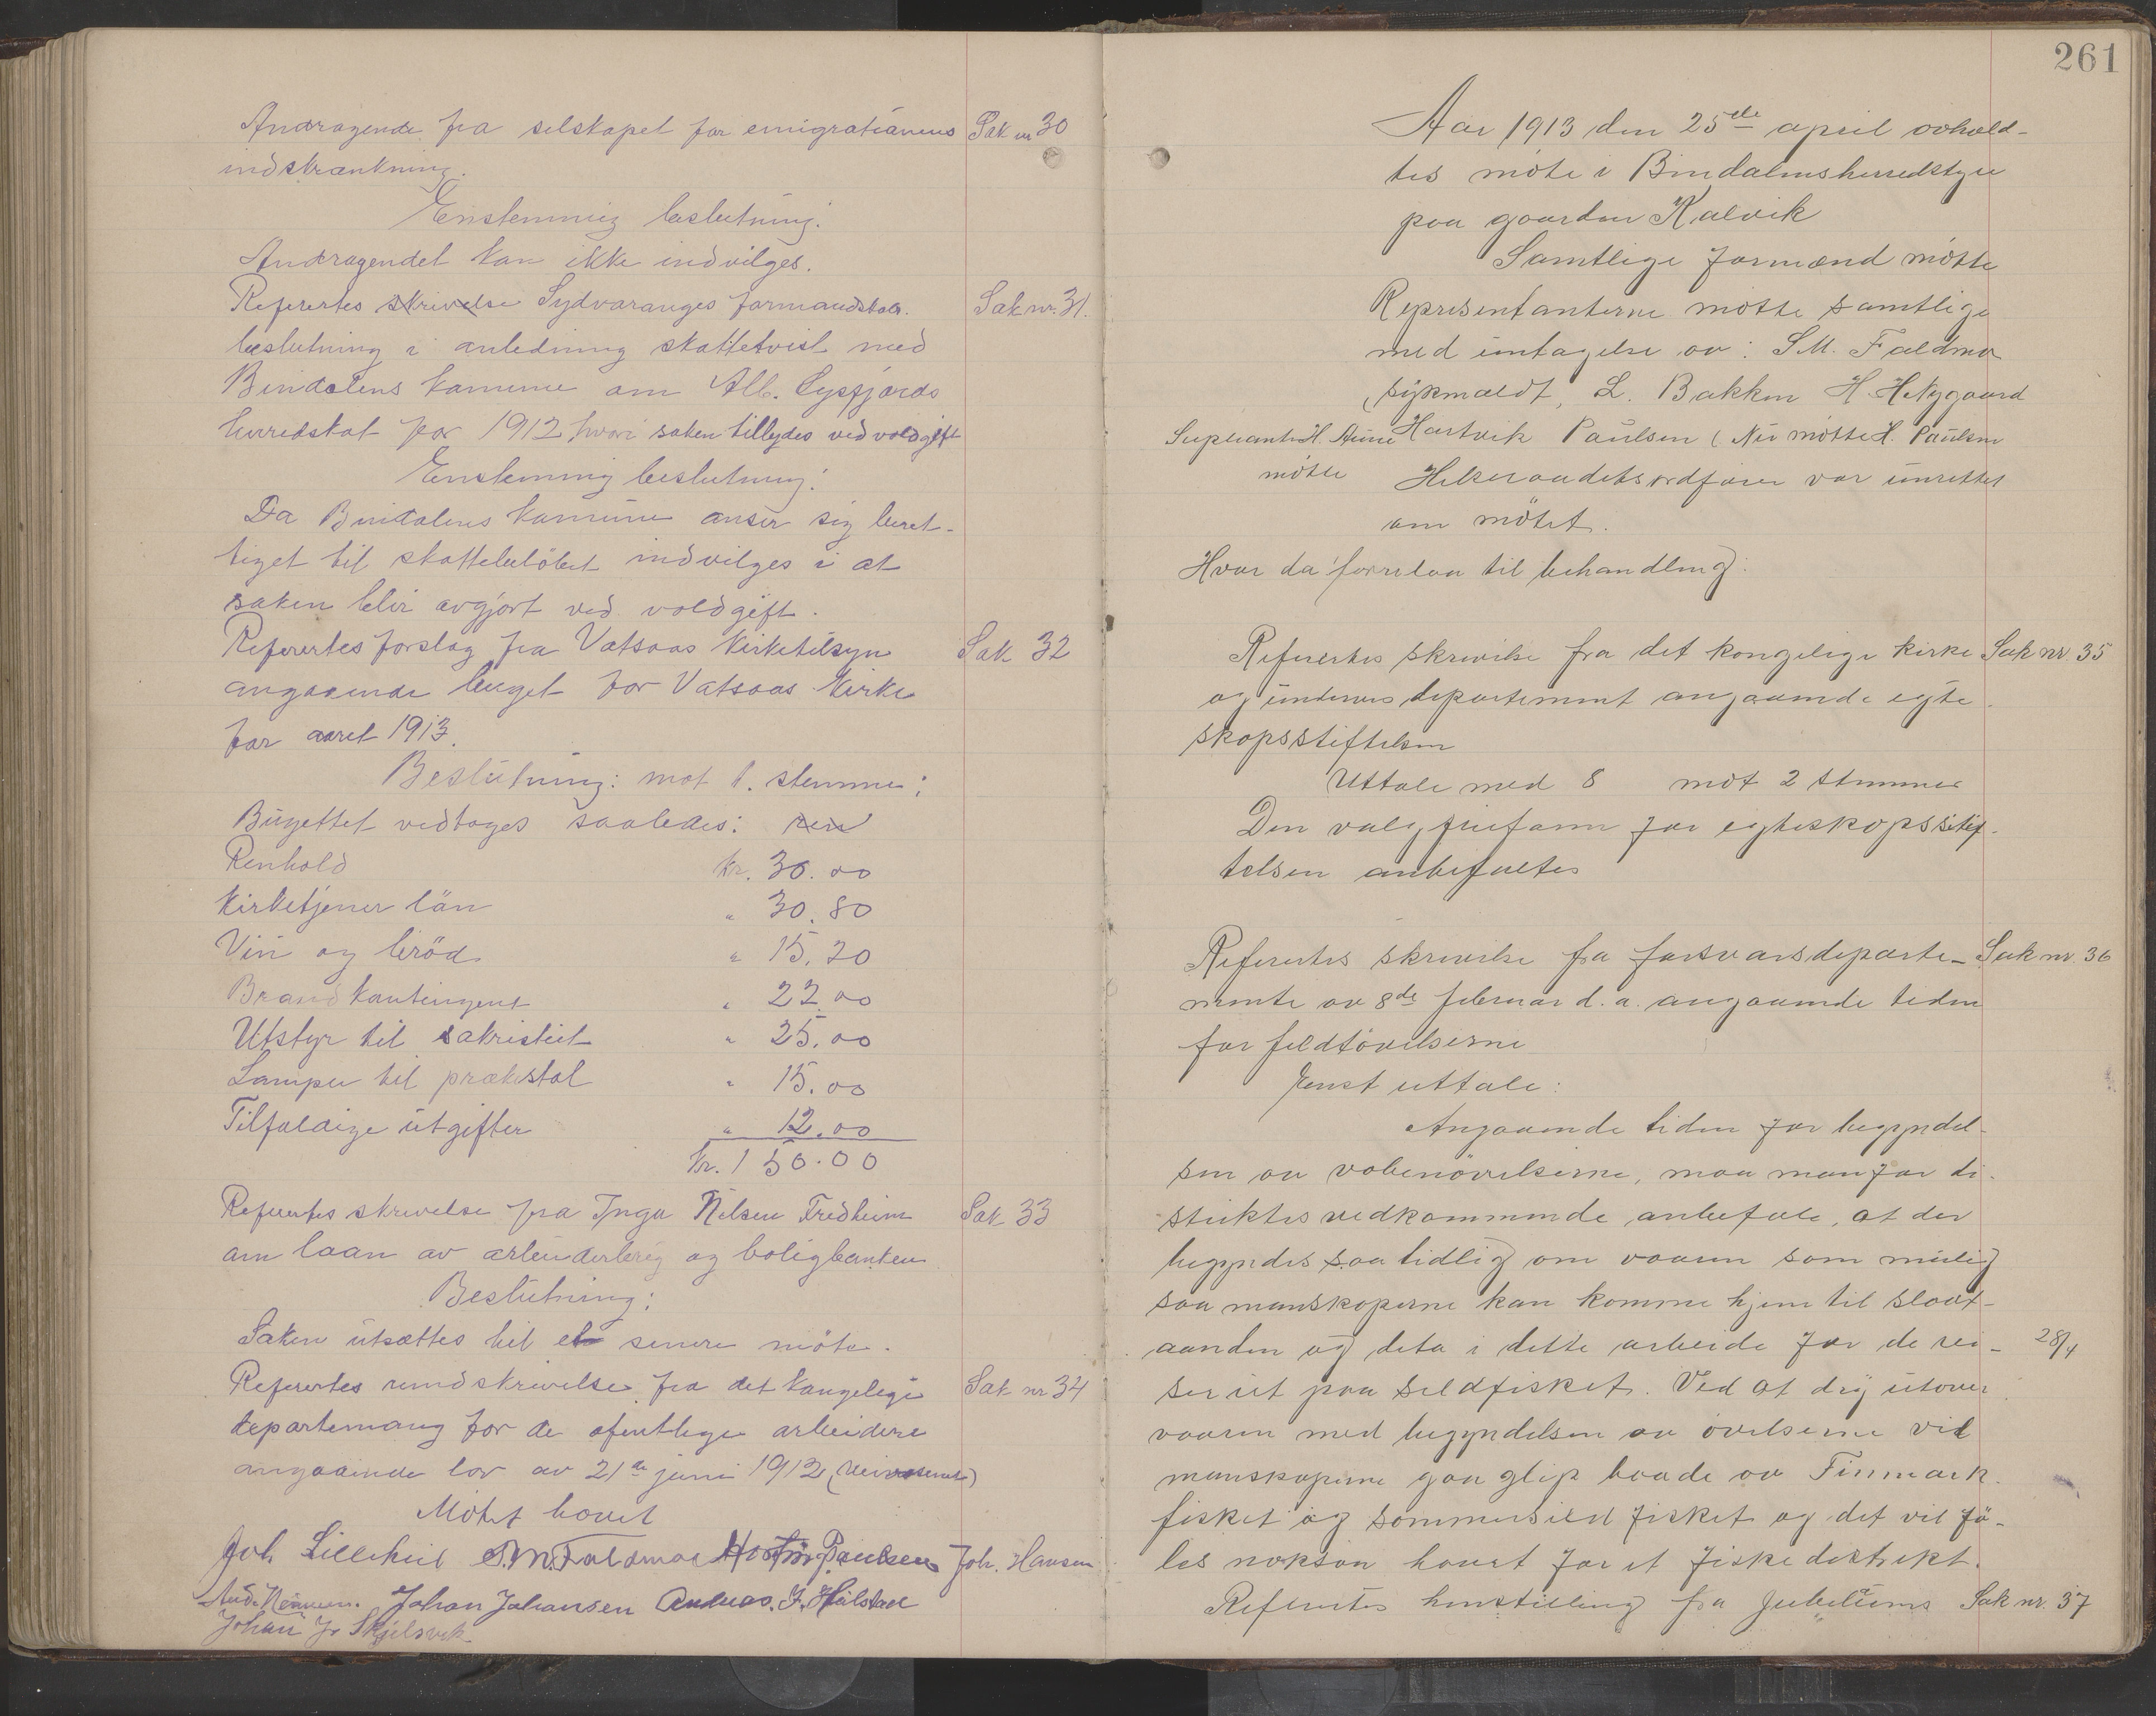 Andragende fra selskapet for emigrationens Sak nr 30
indskrænkning.
Enstemmig beslutning:
Andragendet kan ikke indvilges.
Refertes skrivelse Sydvarangers formandskab. Sak nr. 31.
beslutning i anledning skattetvist med
Bindalens kommune om Alb. Lysfjords
herredskat for 1912 hvori saken tillydes ved voldgift
Enstemmig beslutning:
Da Bindalens kommune anser sig beret-
tiget til skattebeløbet indvilges i at
saken blir avgjort ved voldgift.
Refertes forslag fra Vatsaas Kirketilsyn Sak 32
angaaende buget for Vatsaas Kirke
for aaret 1913.
Beslutning: mot 1. stemme:
Bugettet vedtages saaledes: ren
Renhold kr. 30.00
Kirketjener lön " 30.80
Vin og bröd " 15.20
Brandkontingent " 22.00
Utstyr til sakristiet " 25.00
Lamper til prækestol " 15.00
Tilfældige utgifter " 12.00
Kr. 150.00
Refertes skrivelse fra Inga Nilsen Fredheim Sak 33
om laan av arbeiderbrug og boligbanken
Beslutning:
Saken utsættes til et senere möte.
Refertes rundskrivelse fra det kongelige Sak nr 34
departemang for de ofentlige arbeidere
angaaende lov av 21de juni 1912 (Veivæsenet)
Møtet hævet
Joh Lilleheil S.M. Faldmo Hartvig Paulsen Joh. Hansen
Johan Johansen Andreas. J. Holstad
Johan Jr Skjelsvik
261
Aar 1913 den 25de april avhold-
tes möte i Bindalens herredstyre
paa gaarden Kalvik
Samtlige formænd mötte
Representanterne mötte samtlige
med untagelse av: S.M. Faldmo
(sykmældt, L. Bakken H. H. Nygaard
Supleant H. Aune Hartvik Paulsen (Nu mötte H. Paulsen
mötte Helseraadets ordförer var unrettet
om mötet.
Hvor da forelaa til behandling:
Refertes skrivelse fra det kongelige kirke Sak nr. 35
og underves departement angaaende egte
skapsstiftelsen
Uttale med 8 mot 2 stemmer
Den valgfrie form for egteskapsstif-
telsen anbefales
Refertes skrivelse fra forsvarsdeparte- Sak nr. 36
mente av 8de februar d. a. angaaende tiden
for feldtövelserne
Enst uttale:
Angaaende tiden for begyndel-
sen av vabenövelserne, maa man for di-
striktes vedkommende anbefale, at der
begyndes saa tidlig om vaaren som mulig
saa manskaperne kan komme hjem til slaat-
aanden og delta i dette arbeide för de rei- 28/4
ser ut paa sildfisket. Ved at drÿ utover
vaaren med begyndelsen av övelserne vil
manskaperne gaa glip baade av Finmark
fisket og sommersild fisket og det vil fö-
les noksaa haart for et fiskedistrikt.
Refertes henstilling fra Jubilæums Sak nr. 37